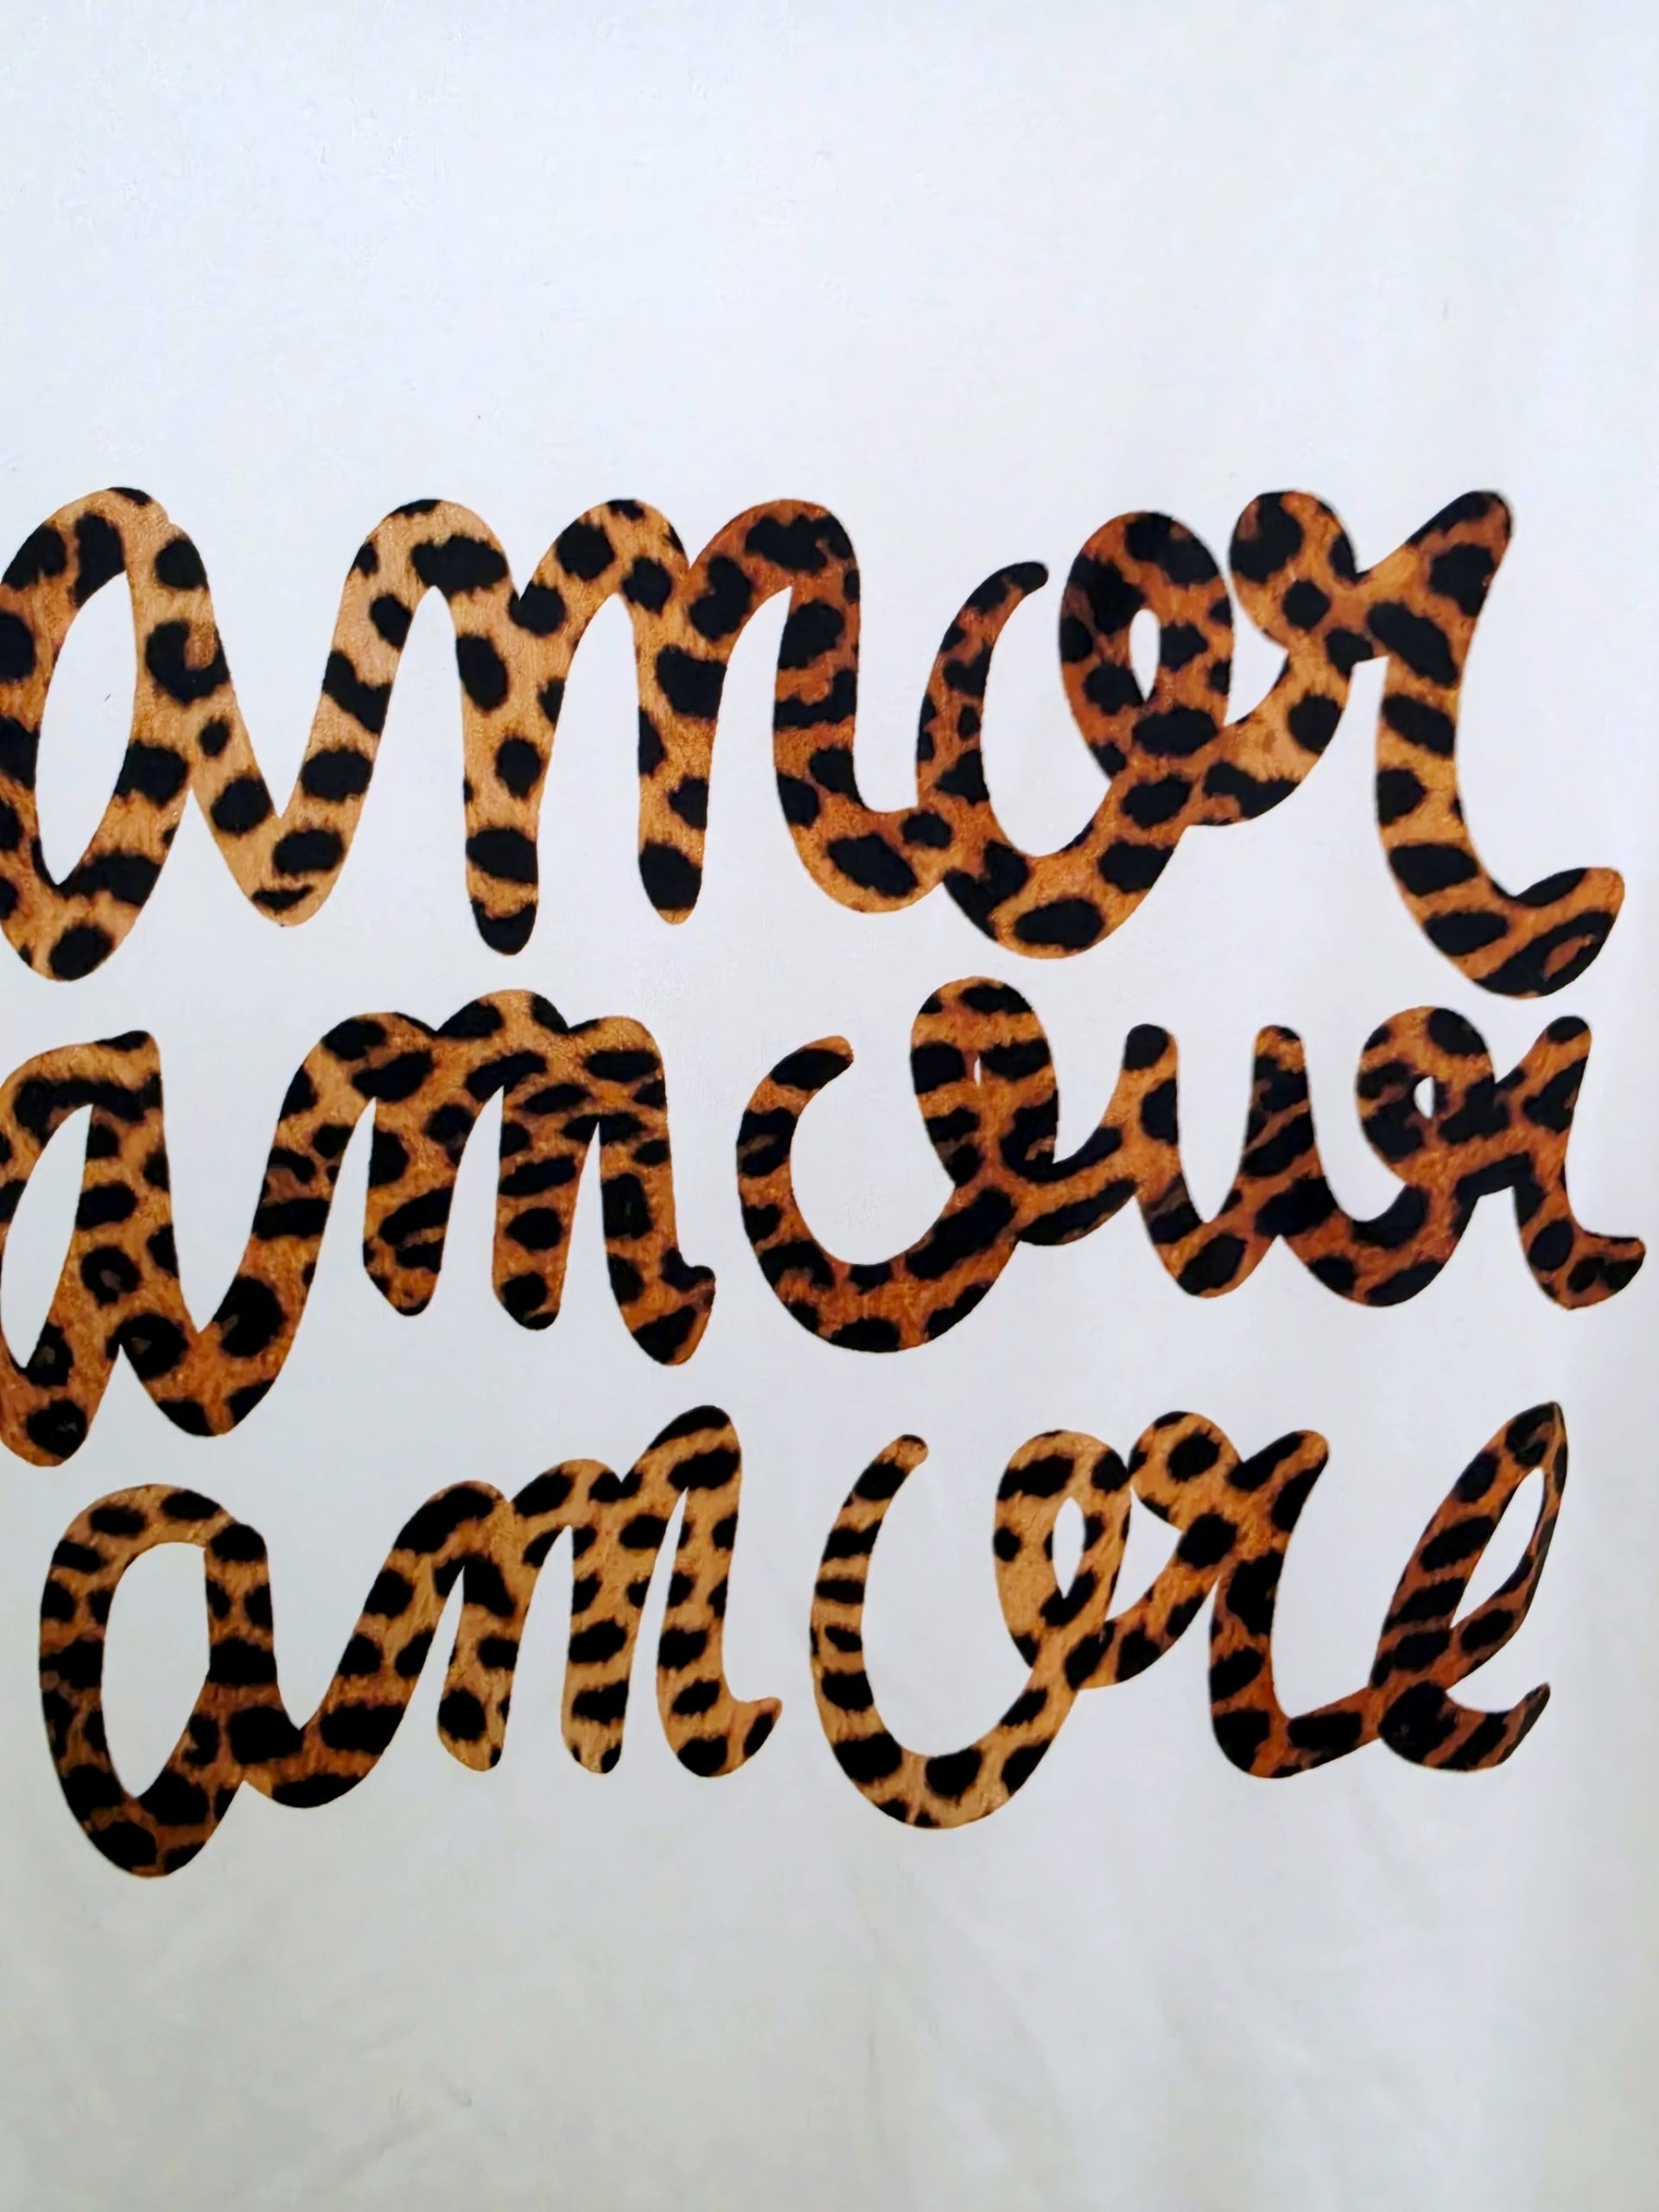 amor
amour
amore